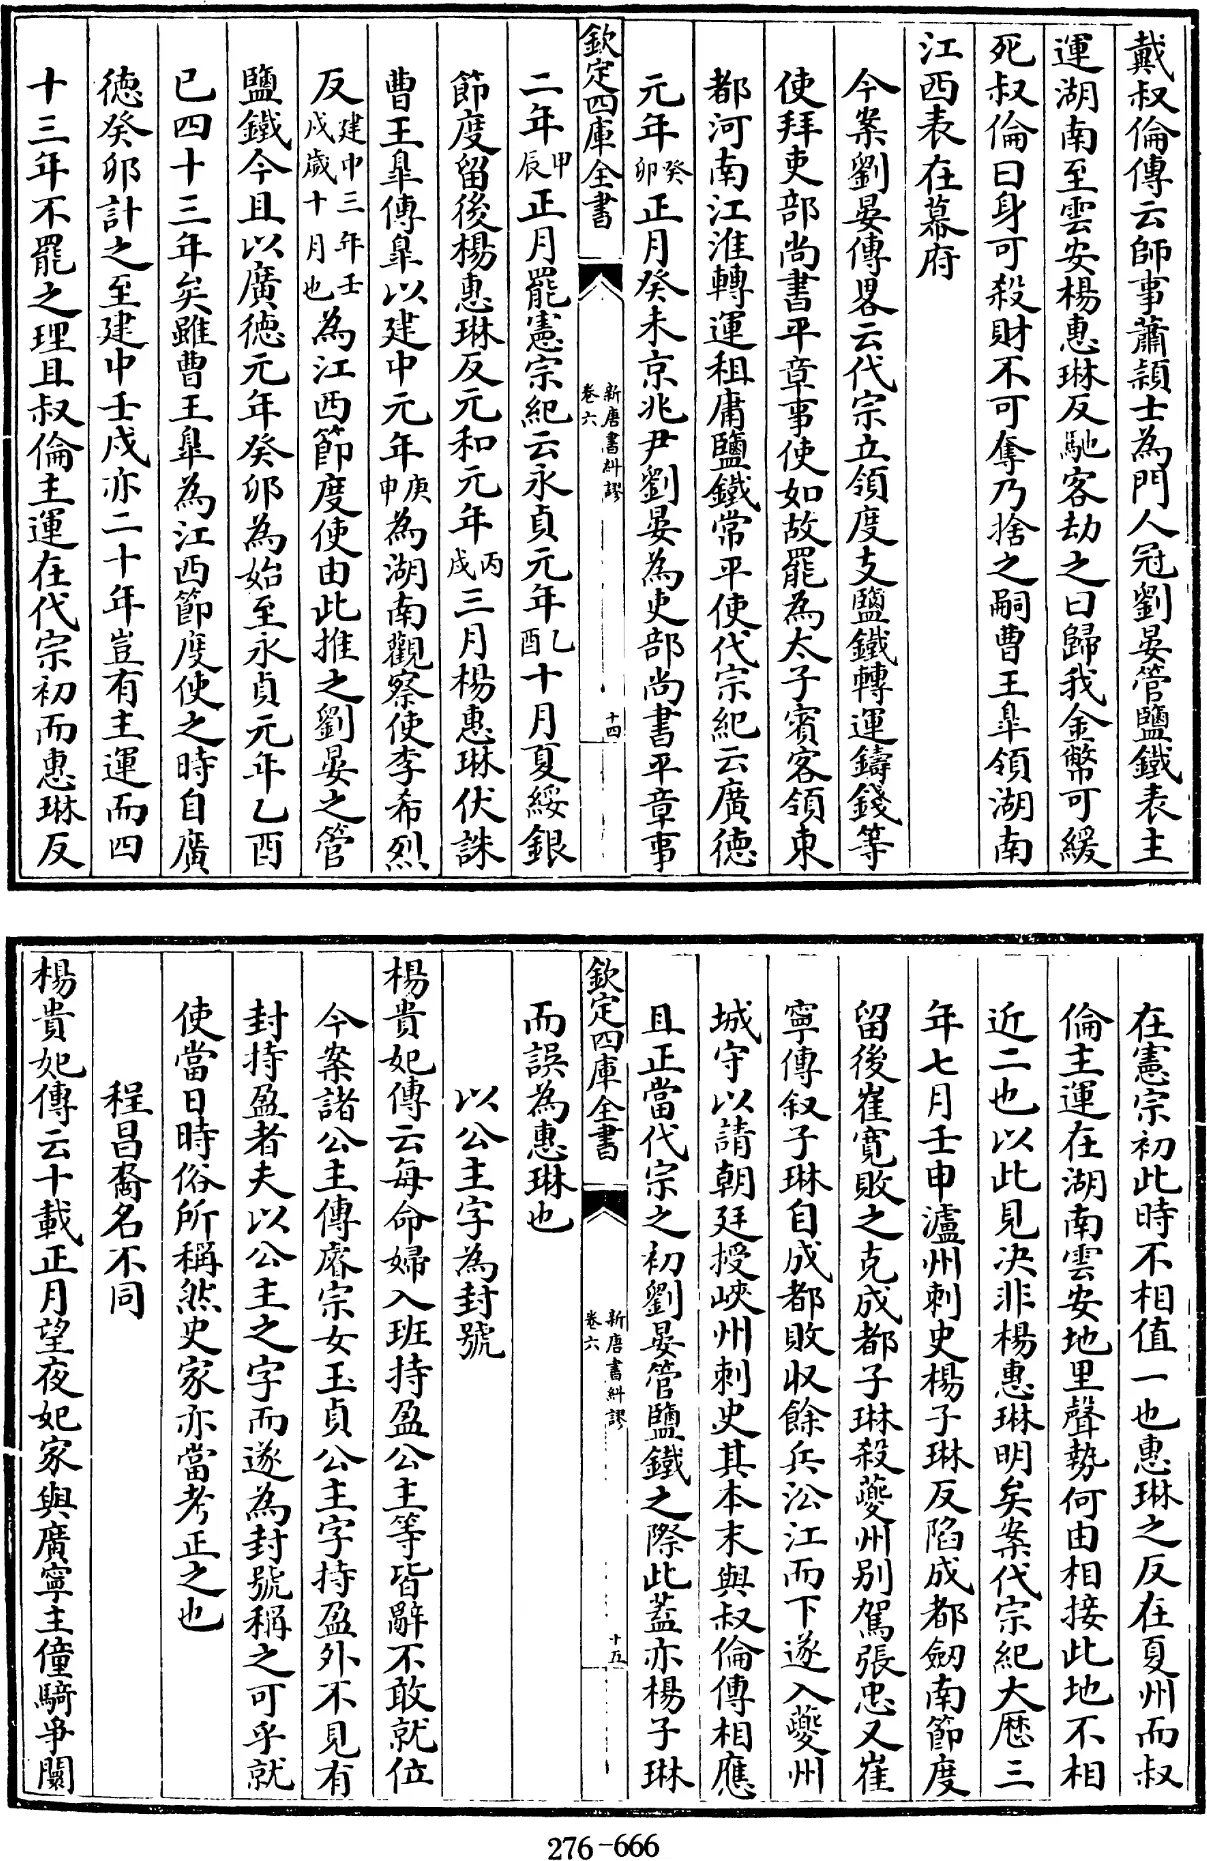 戴叔倫傳云師事蕭穎士為門人冠劉晏管鹽鐵表主
運湖南至雲安楊惠琳反馳客劫之曰歸我金幣可緩
死叔倫曰身可殺財不可奪乃捨之嗣曹王臯領湖南
江西表在幕府
今案劉晏傳畧云代宗立領度支鹽鐵轉運鑄錢等
使拜吏部尚書平章事使如故罷為太子賓客領東
都河南江淮轉運租庸鹽鐵常平使代宗紀云廣徳
元年癸卯正月癸未京兆尹劉晏為吏部尚書平章事
欽定四庫全書 新唐書糾謬 卷六 十四
二年甲辰正月罷憲宗紀云永貞元年乙酉十月夏綏銀
節度留後楊惠琳反元和元年丙戌三月楊惠琳伏誅
曹王臯傳臯以建中元年庚申為湖南觀察使李希烈
反建中三年壬戌歲十月也為江西節度使由此推之劉晏之管
鹽鐵今且以廣徳元年癸卯為始至永貞元年乙酉
已四十三年矣雖曹王臯為江西節度使之時自廣
徳癸卯計之至建中壬戌亦二十年豈有主運而四
十三年不罷之理且叔倫主運在代宗初而惠琳反
在憲宗初此時不相值一也惠琳之反在夏州而叔
倫主運在湖南雲安地里聲勢何由相接此地不相
近二也以此見决非楊惠琳明矣案代宗紀大厯三
年七月壬申瀘州刺史楊子琳反陷成都劒南節度
留後崔寛敗之克成都子琳殺夔州别駕張忠又崔
寧傳叙子琳自成都敗収餘兵沿江而下遂入夔州
城守以請朝廷授峽州刺史其本末與叔倫傳相應
且正當代宗之初劉晏管鹽鐵之際此蓋亦楊子琳
欽定四庫全書 新唐書糾謬 卷六 十五
而誤為惠琳也
以公主字為封號
楊貴妃傳云每命婦入班持盈公主等皆辭不敢就位
今案諸公主傳睿宗女玉貞公主字持盈外不見有
封持盈者夫以公主之字而遂為封號稱之可乎就
使當日時俗所稱然史家亦當考正之也
程昌裔名不同
楊貴妃傳云十載正月望夜妃家與廣寧主僮騎爭闤
276-666